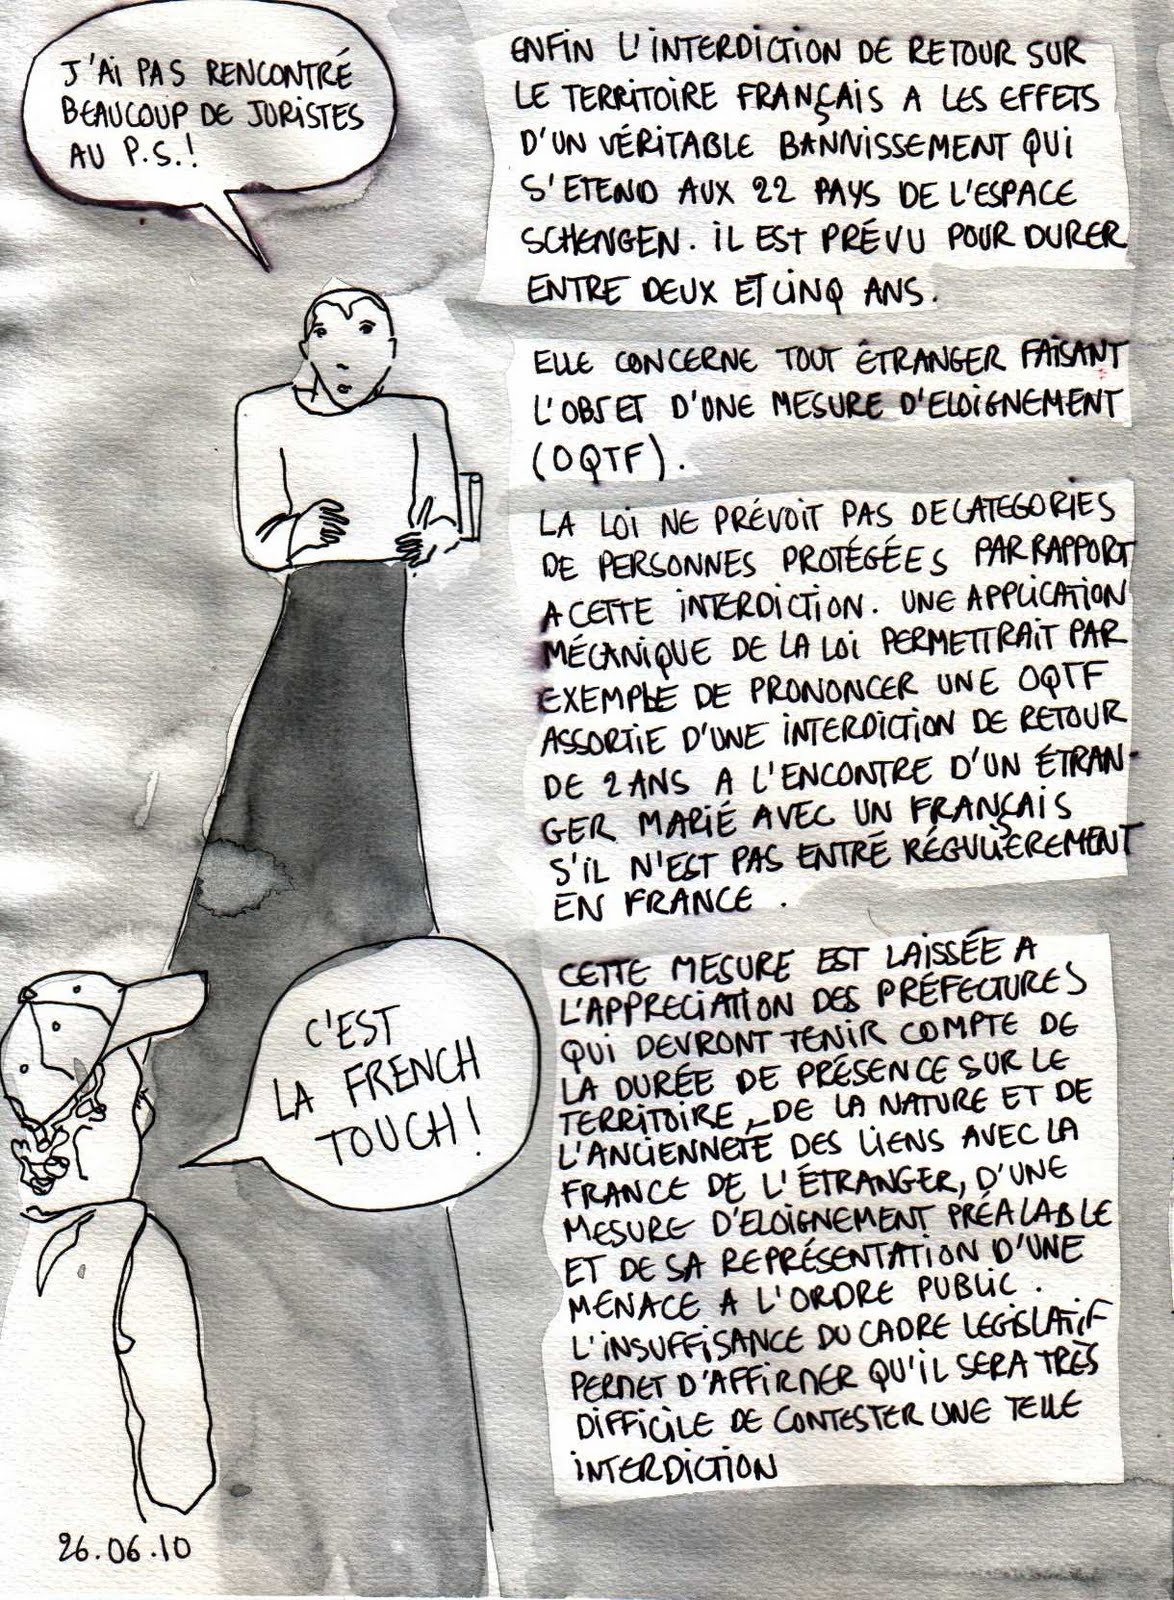 J'AI PAS RENCONTRÉ
BEAUCOUP DE JURISTES
AU P.S.!
ENFIN L'INTERDICTION DE RETOUR SUR
LE TERRITOIRE FRANÇAIS A LES EFFETS
D'UN VÉRITABLE BANNISSEMENT QUI
S'ETEND AUX 22 PAYS DE L'ESPACE
SCHENGEN. IL EST PRÉVU POUR DURER
ENTRE DEUX ET CINQ ANS.
ELLE CONCERNE TOUT ÉTRANGER FAISANT
L'OBJET D'UNE MESURE D'ELOIGNEMENT
(OQTF).
LA LOI NE PRÉVOIT PAS DE CATEGORIES
DE PERSONNES PROTÉGÉES PAR RAPPORT
A CETTE INTERDICTION. UNE APPLICATION
MÉCANIQUE DE LA LOI PERMETTRAIT PAR
EXEMPLE DE PRONONCER UNE OQTF
ASSORTIE D'UNE INTERDICTION DE RETOUR
DE 2 ANS A L'ENCONTRE D'UN ÉTRAN-
GER MARIÉ AVEC UN FRANÇAIS
S'IL N'EST PAS ENTRÉ RÉGULIEREMENT
EN FRANCE.
C'EST
LA FRENCH
TOUCH!
CETTE MESURE EST LAISSÉE A
L'APPRECIATION DES PRÉFECTURES
QUI DEVRONT TENIR COMPTE DE
LA DURÉE DE PRÉSENCE SUR LE
TERRITOIRE, DE LA NATURE ET DE
L'ANCIENNETÉ DES LIENS AVEC LA
FRANCE DE L'ÉTRANGER, D'UNE
MESURE D'ELOIGNEMENT PRÉALABLE
ET DE SA REPRÉSENTATION D'UNE
MENACE A L'ORDRE PUBLIC.
L'INSUFFISANCE DU CADRE LEGISLATIF
PERMET D'AFFIRMER QU'IL SERA TRÈS
DIFFICILE DE CONTESTER UNE TELLE
INTERDICTION
26.06.10